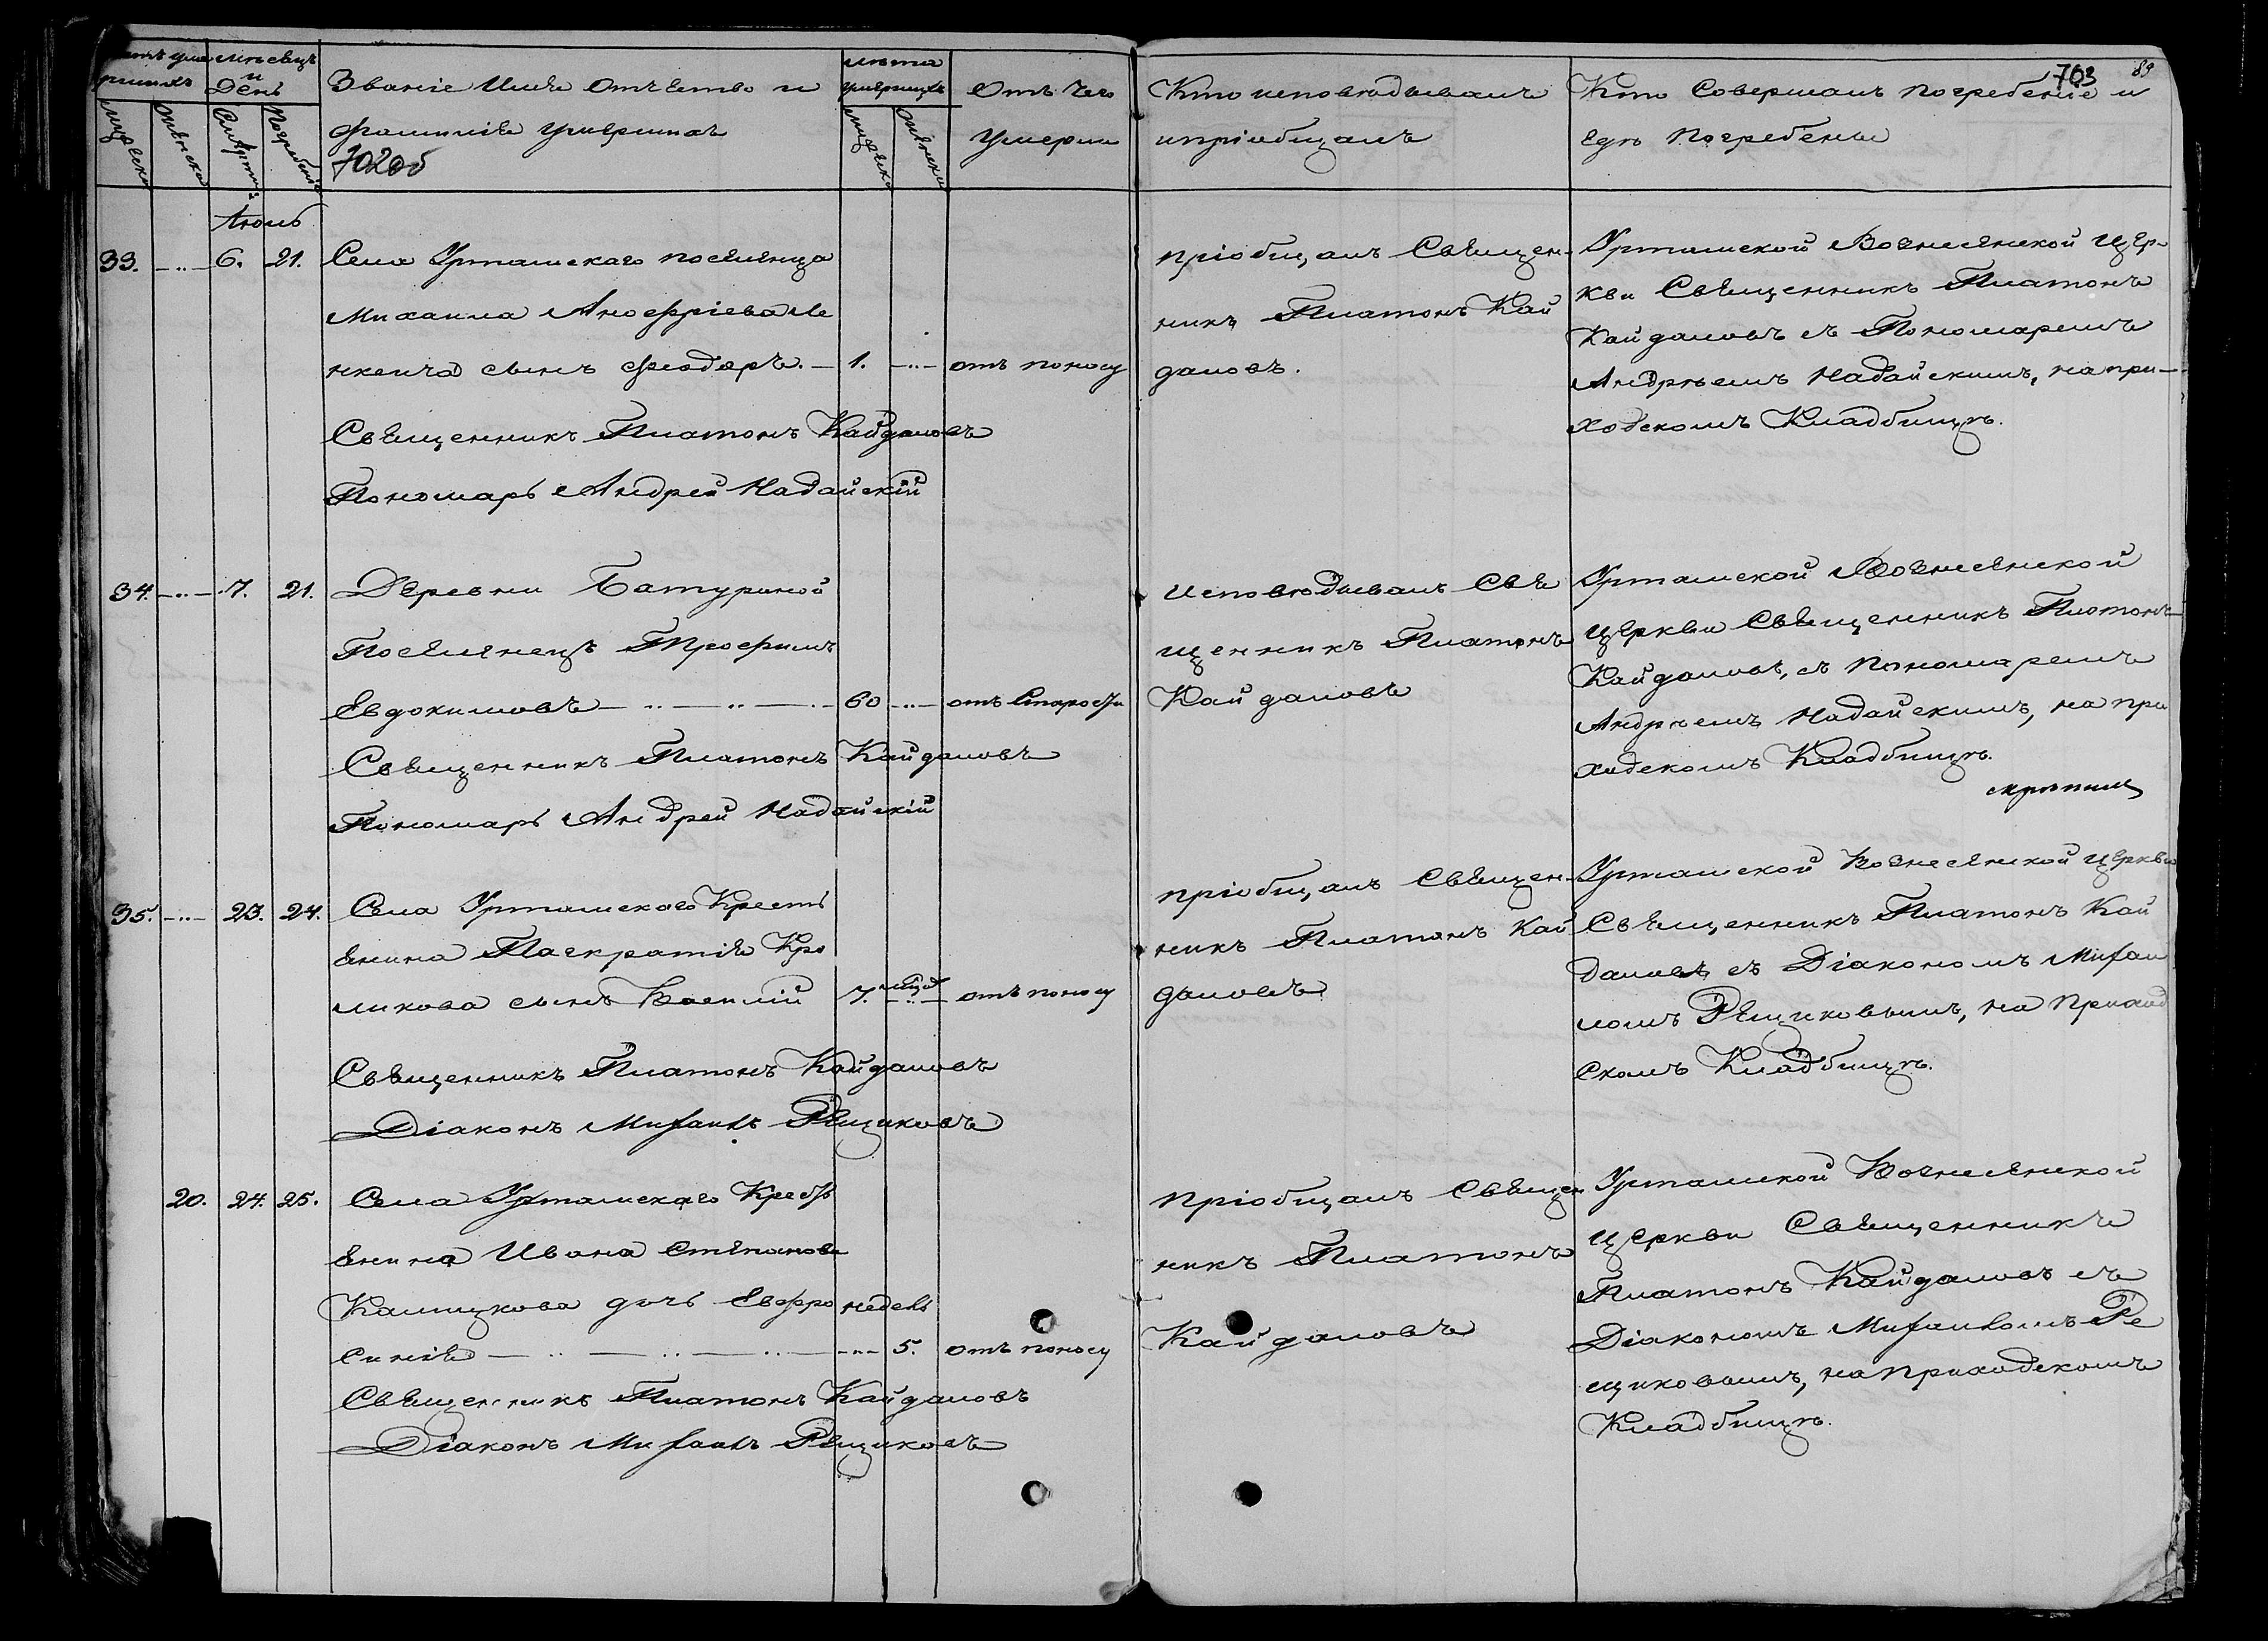 Счетъ умершихъ
Мѣсяцъ и День
Званіе Имя Отчество и
фамилія умершихъ
702об
Лѣта умершихъ
Отъ чего
умерли
Кто исповѣдывалъ
и пріобщалъ
Кто Совершалъ погребеніе и
гдѣ Погребены
703
89
Мужеска
Женска
Смерти
Погребенія
Мужеска
Женска
Іюль
33. 6. 21. Села Урталискаго поселенца
Михаила Анофріева
сынъ Феодоръ. — 1. отъ поносу
Священникъ Платонъ Кайдаловъ
Пономарь Андрей Надайскій
Пріобщалъ Священ-
никъ Платонъ Кай
даловъ.
Вознесенской Цер-
кви Священникъ Платонъ
Кайдаловъ съ Пономаремъ
Андреемъ Надайскимъ, на при-
ходскомъ Кладбищѣ.
34. 7. 21. Деревни Батуриной
Поселенецъ Трофимъ
Евдокимовъ 60 отъ Старости
Священникъ Платонъ Кайдаловъ
Пономарь Андрей Надайскій
Исповѣдывалъ Свя
щенникъ Платонъ
Кайдаловъ
Вознесенской
Церкви Священникъ Платонъ
Кайдаловъ, съ Пономаремъ
Андреемъ Надайскимъ, на при
ходскомъ Кладбищѣ.
35. 23. 24. Села Кресть
янина Панкратія Кро
ликова сынъ Василій 7. мѣсяц. отъ поносу
Священникъ Платонъ Кайдаловъ
Діаконъ Михаилъ Рещиковъ
Пріобщалъ Священ-
никъ Платонъ Кай
даловъ.
Вознесенской Церкви
Священникъ Платонъ Кай
даловъ съ Діакономъ Михаи
ломъ Рещиковымъ, на Приход
скомъ Кладбищѣ.
20. 24. 25. Села Кресть
янина Ивана Степанова
дочь Евфро недель
синія 5. отъ поносу
Священникъ Платонъ Кайдаловъ
Діаконъ Михаилъ Рещиковъ
Пріобщалъ Священ
никъ Платонъ
Кайдаловъ
Вознесенской
Церкви Священникъ
Платонъ Кайдаловъ съ
Діакономъ Михаиломъ Ре
щиковымъ, на Приходскомъ
Кладбищѣ.